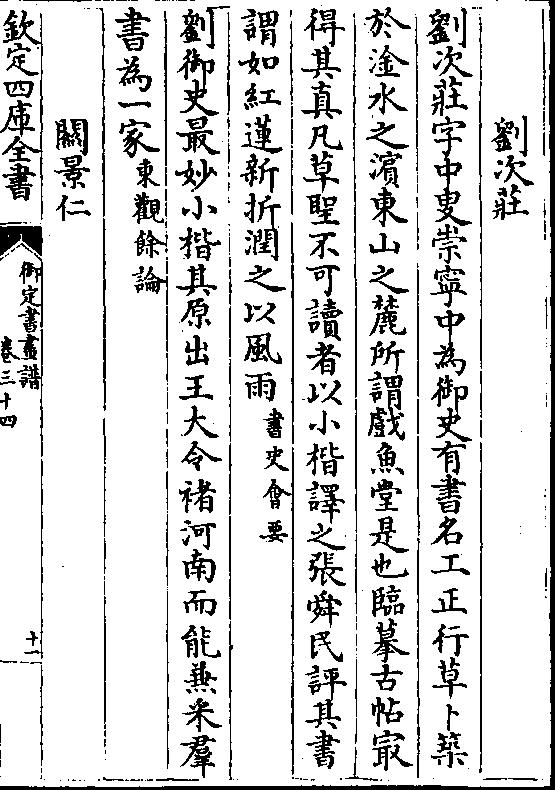 劉次莊
劉次莊字中叟崇寧中為御史有書名工正行草卜築
於淦水之濵東山之麓所謂戲魚堂是也臨摹古帖㝡
得其真凡草聖不可讀者以小楷譯之張舜民評其書
謂如紅蓮新折潤之以風雨書史會要
劉御史最妙小楷其原出王大令褚河南而能兼采羣
書為一家東觀餘論
闗景仁
欽定四庫全書
御定書畫譜
卷三十四
十一